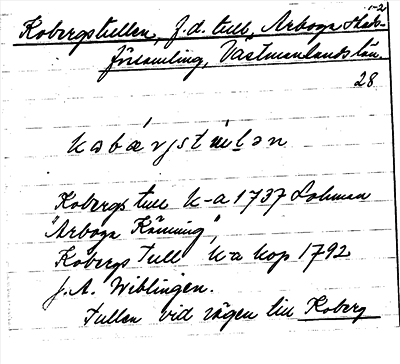 1-2
Kobergstullen, f.d. tull, Arboga Stads-
församling, Västmanlands län.
28
Kobergs tull k-a 1737 Lohman
"Arboga Känning",
Kobergs Tull ka kop 1792
J. A. Wiblingen.
Tullen vid vägen till Koberg